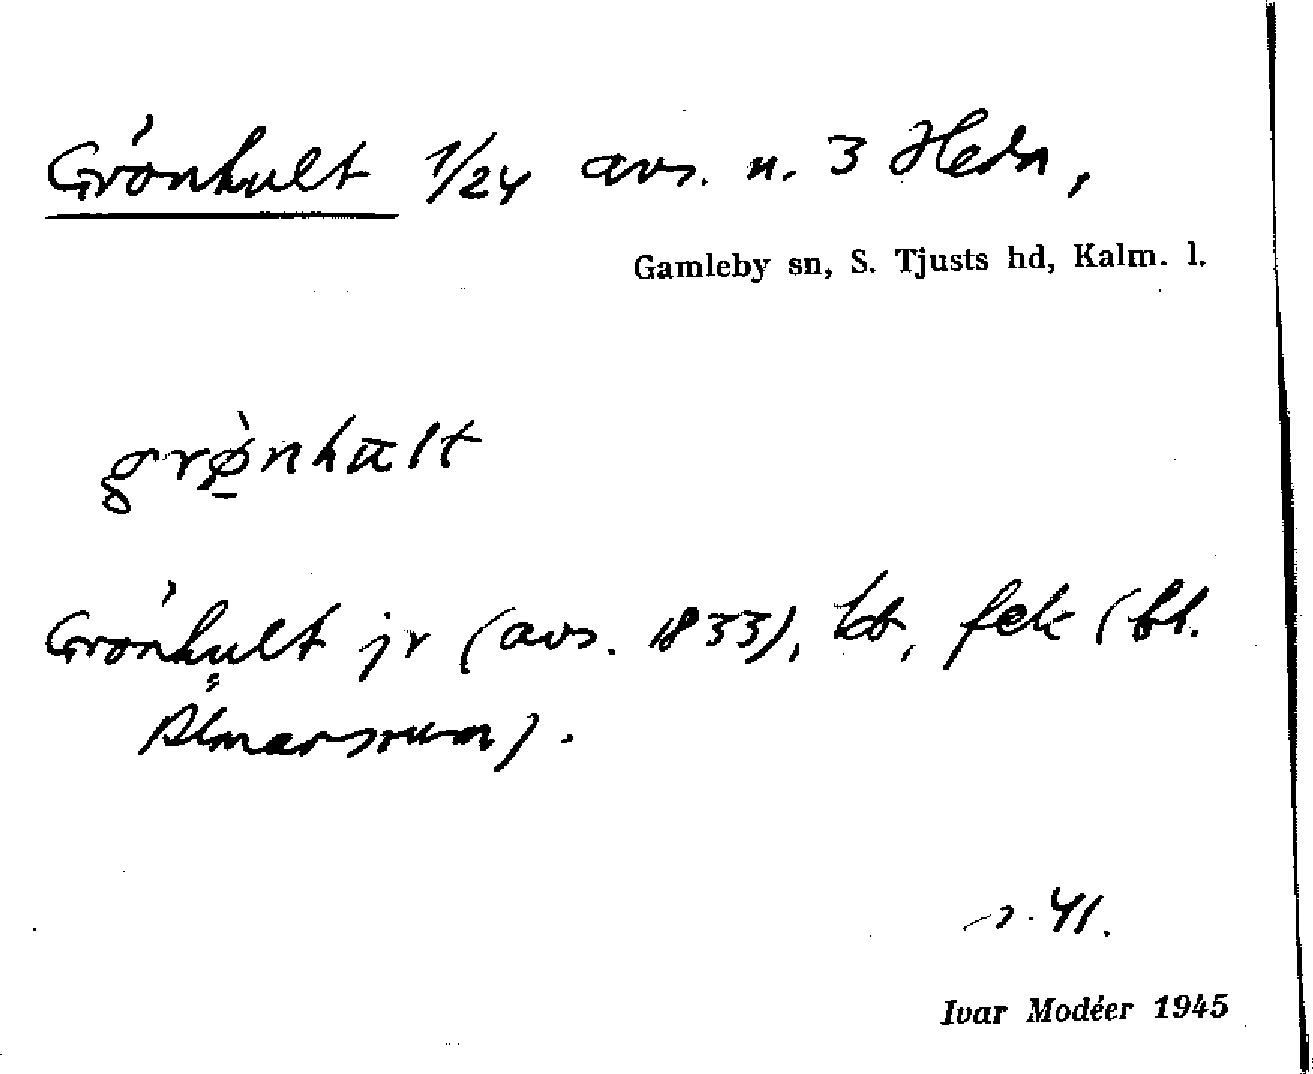 Grönhult 1/24 avs. n. 3 Hedn,
Gamleby sn, S. Tjusts hd, Kalm. l.
grø̀nhult
Grönhult jr (avs. 1833), kb, fek (bl.
Almarsrum).
s. 41.
Ivar Modéer 1945